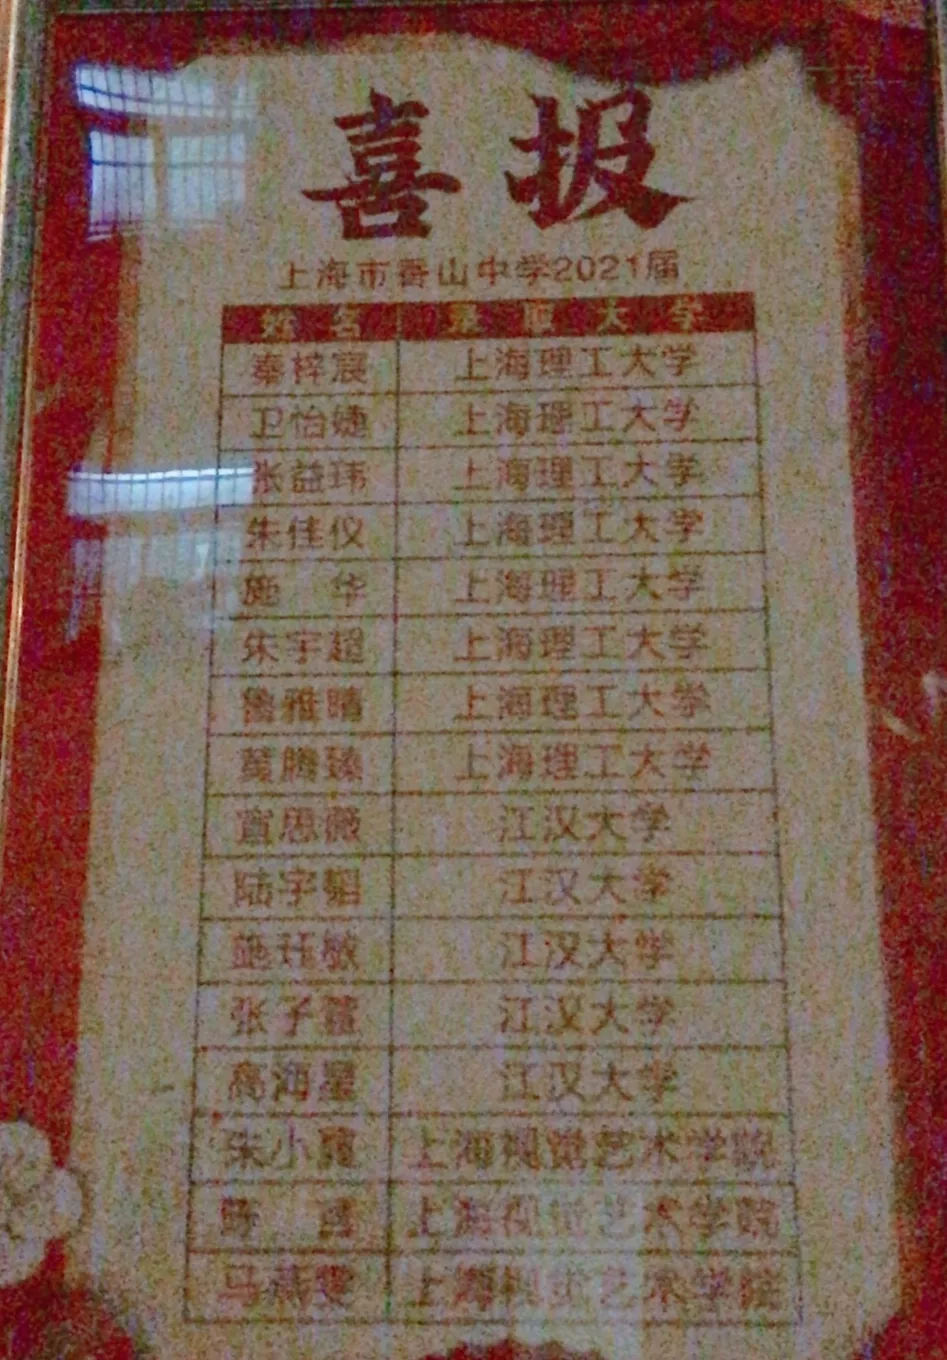 喜报
上海市香山中学2021届
姓 名 录 取 大 学
秦梓宸 上海理工大学
卫怡婕 上海理工大学
张益玮 上海理工大学
朱佳仪 上海理工大学
施 华 上海理工大学
朱宇超 上海理工大学
鲁雅晴 上海理工大学
黄腾臻 上海理工大学
宣思薇 江汉大学
陆宇韬 江汉大学
施珏敏 江汉大学
张子萱 江汉大学
高海星 江汉大学
朱小霞 上海视觉艺术学院
陈 上海视觉艺术学院
马燕雯 上海视觉艺术学院